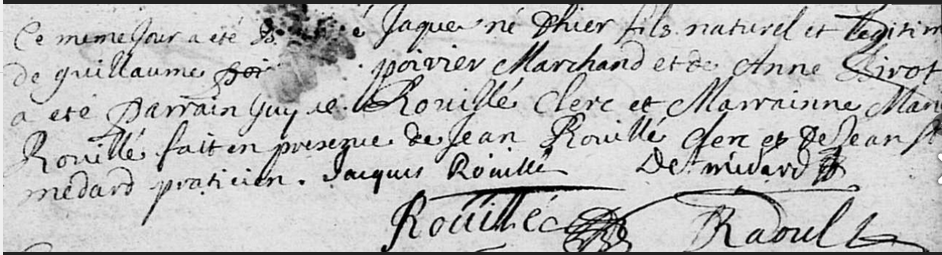 Ce meme jour a eté Jaque né d'hier fils naturel et legitim
de guillaume poirier Marchand et de Anne
a eté parrain Rouillé Clerc et Marrainne Mari
Rouillé fait en presence de Jean Rouillé clerc et de Jean St
medard praticien. Jacques Rouillé De St medard
Rouillé Raoult